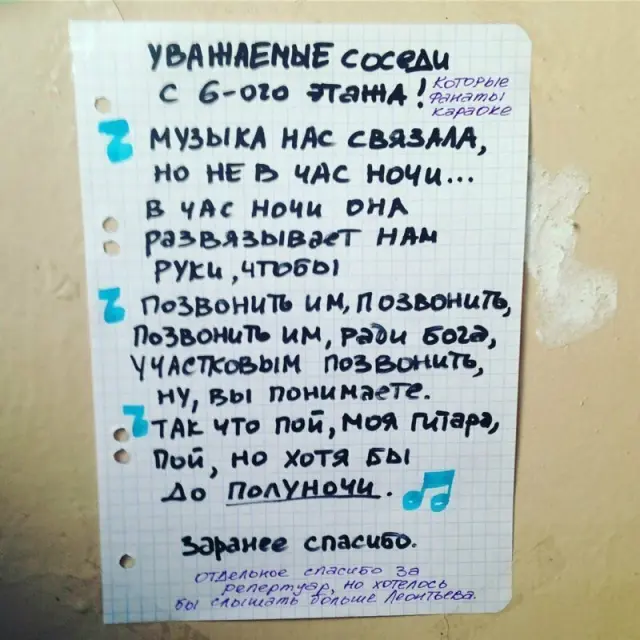 УВАЖАЕМЫЕ СОСЕДИ
С 6-ОГО ЭТАЖА!
КОТОРЫЕ
ФАНАТЫ
КАРАОКЕ
МУЗЫКА НАС СВЯЗАЛА,
НО НЕ В ЧАС НОЧИ...
В ЧАС НОЧИ ОНА
РАЗВЯЗЫВАЕТ НАМ
РУКИ, ЧТОБЫ
ПОЗВОНИТЬ ИМ, ПОЗВОНИТЬ,
ПОЗВОНИТЬ ИМ, РАДИ БОГА,
УЧАСТКОВЫМ ПОЗВОНИТЬ,
НУ, ВЫ ПОНИМАЕТЕ.
ТАК ЧТО ПОЙ, МОЯ ГИТАРА,
ПОЙ, НО ХОТЯ БЫ
ДО ПОЛУНОЧИ.
ЗАРАНЕЕ СПАСИБО.
ОТДЕЛЬНОЕ СПАСИБО ЗА
РЕПЕРТУАР, НО ХОТЕЛОСЬ
БЫ СЛЫШАТЬ БОЛЬШЕ ЛЕОНТЬЕВА.